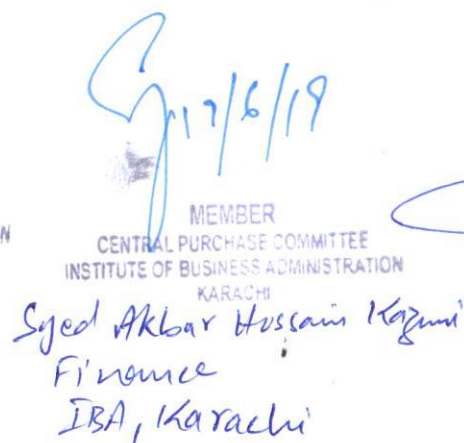 17/6/19
N
MEMBER
CENTRAL PURCHASE COMMITTEE
INSTITUTE OF BUSINESS ADMINISTRATION
KARACHI
Syed Akbar Hussain Kazmi
Finance
IBA, Karachi